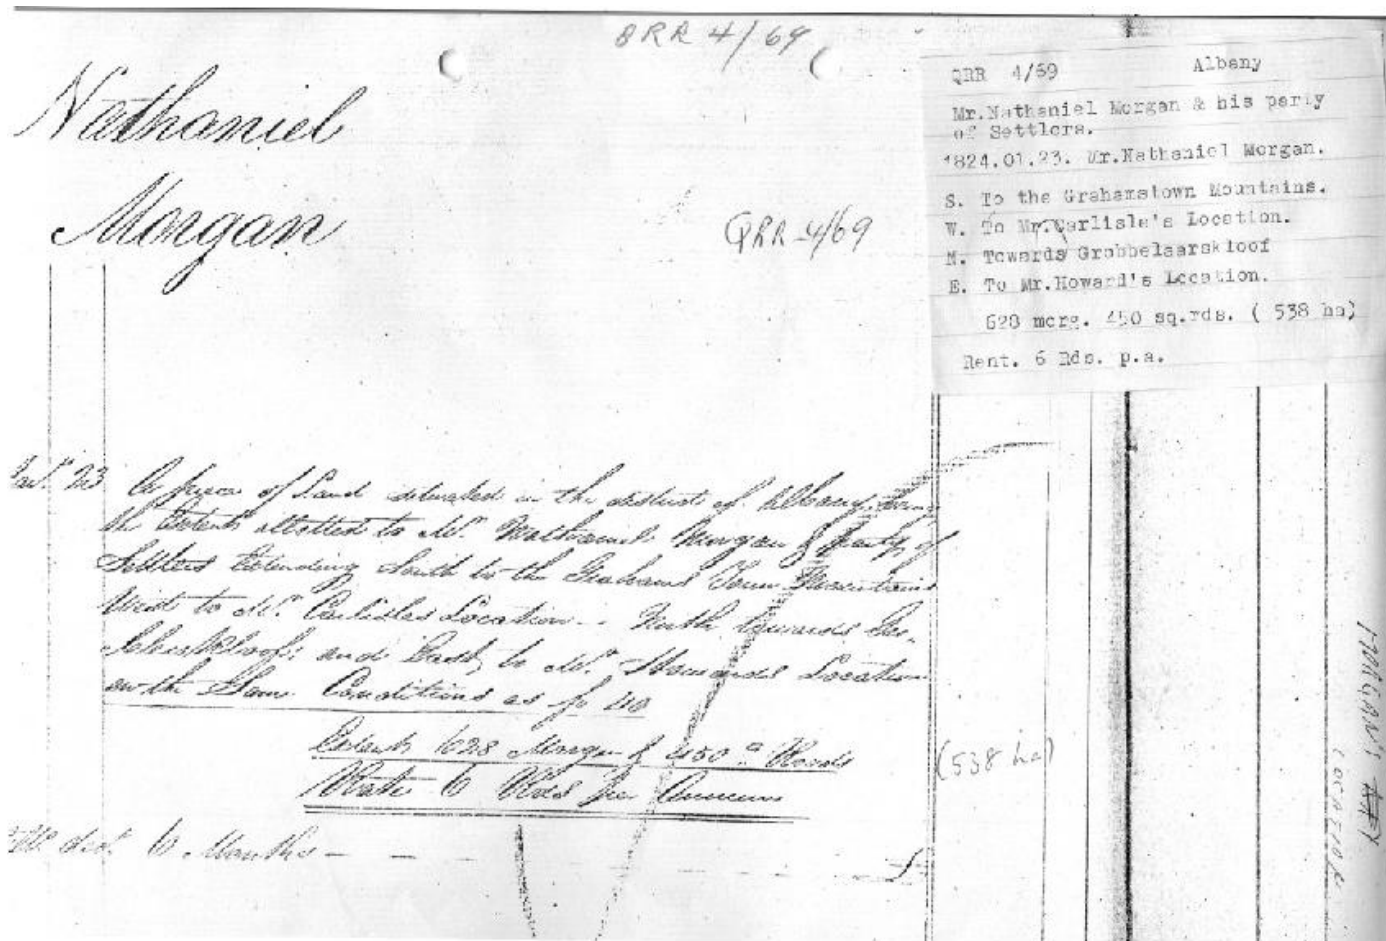 QRR 4/69
Nathaniel
Morgan
QRR 4/69
QRR 4/69 Albany
Mr.Nathaniel Morgan & his party
of Settlers.
1824.01.23. Mr.Nathaniel Morgan.
S. To the Grahamstown Mountains.
W. To Mr.Carlisle's Location.
N. Towards Grobbelaarskloof
E. To Mr.Howard's Location.
628 morg. 450 sq.rds. ( 538 ha)
Rent. 6 Rds. p.a.
Jany. 23 A piece of Land situated in the district of Albany being
the Extent allotted to Mr. Nathaniel Morgan & Party of
Settlers Extending South to the Grahams Town Mountains
West to Mr. Carlisles Location - North towards
and East to Mr. Howards Location
on the Same Conditions as fo 40
Extent 628 Morgen & 450 Roods
(538 ha)
Rate 6 Rds per Annum
6 Months -
MORGAN'S
LOCATION